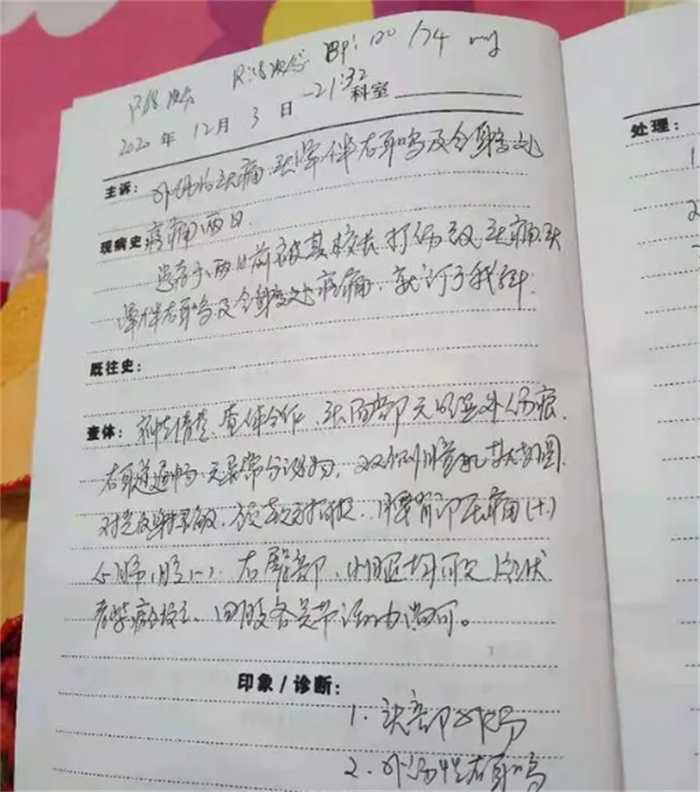 P: 次/分 R: 18次/分 BP: 120/74 mmHg
2020年12月3日 21:32 科室
主诉: 外伤后头痛、头晕伴右耳鸣及全身多处
现病史 疼痛两日.
患者于两日前被某校长打伤致头痛、头
晕伴右耳鸣及全身多处疼痛, 就诊于我科.
既往史:
查体: 神志清楚, 查体合作, 头面部无明显外伤痕.
右耳道通畅, 无异常分泌物, 双侧瞳孔等大等圆.
对光反射灵敏, 颈软, 无抵抗, 腰背部压痛(+)
心肺腹(-). 右臀部, 小腿区均可见片状
青紫瘀斑, 四肢各关节活动尚可。
印象/诊断:
1. 头部外伤
2. 外伤性右耳鸣
处理:
1
2